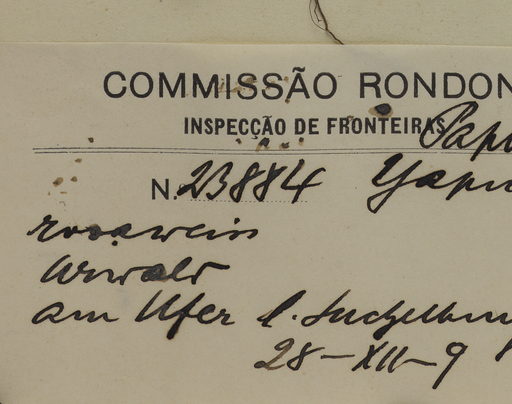 COMMISSÃO RONDON
INSPECÇÃO DE FRONTEIRAS
N. 23884
rosaweiss
Urwald
am Ufer
28-XII-9